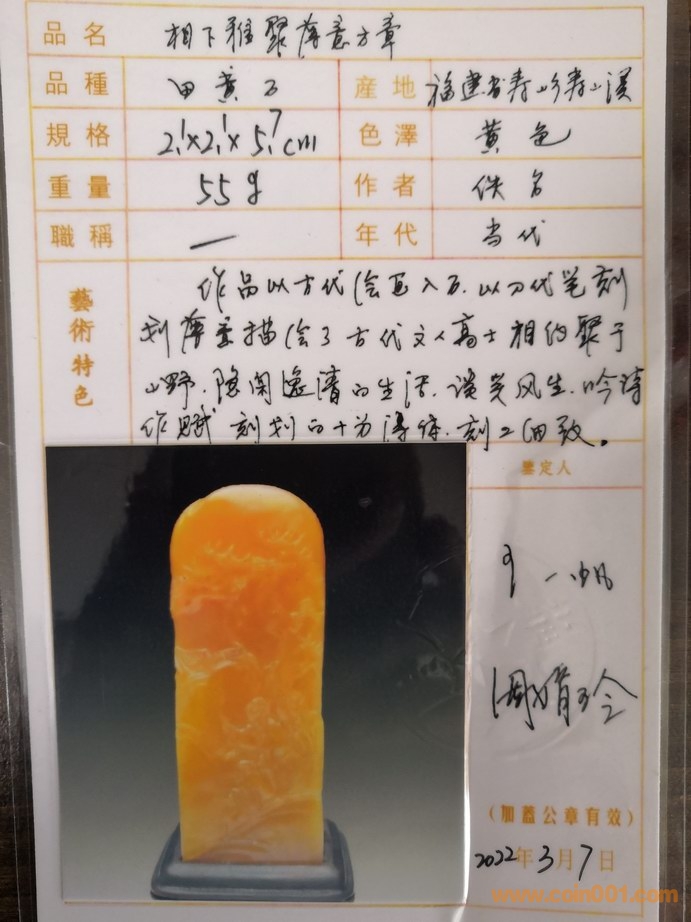 品名 相下雅聚薄意方章
品種 田黄石 産地 福建省寿山乡寿山溪
規格 2.1×2.1×5.7cm 色澤 黄色
重量 55g 作者 佚名
職稱 — 年代 当代
藝術特色 作品以古代绘画入石.以刀代笔刻
划薄意描绘了古代文人高士相约聚于
山野.隐闲逸清的生活.谈笑风生.吟诗
作赋 刻划的十分得体.刻工细致。
鑒定人
(加蓋公章有效)
2022年3月7日
www.coin001.com